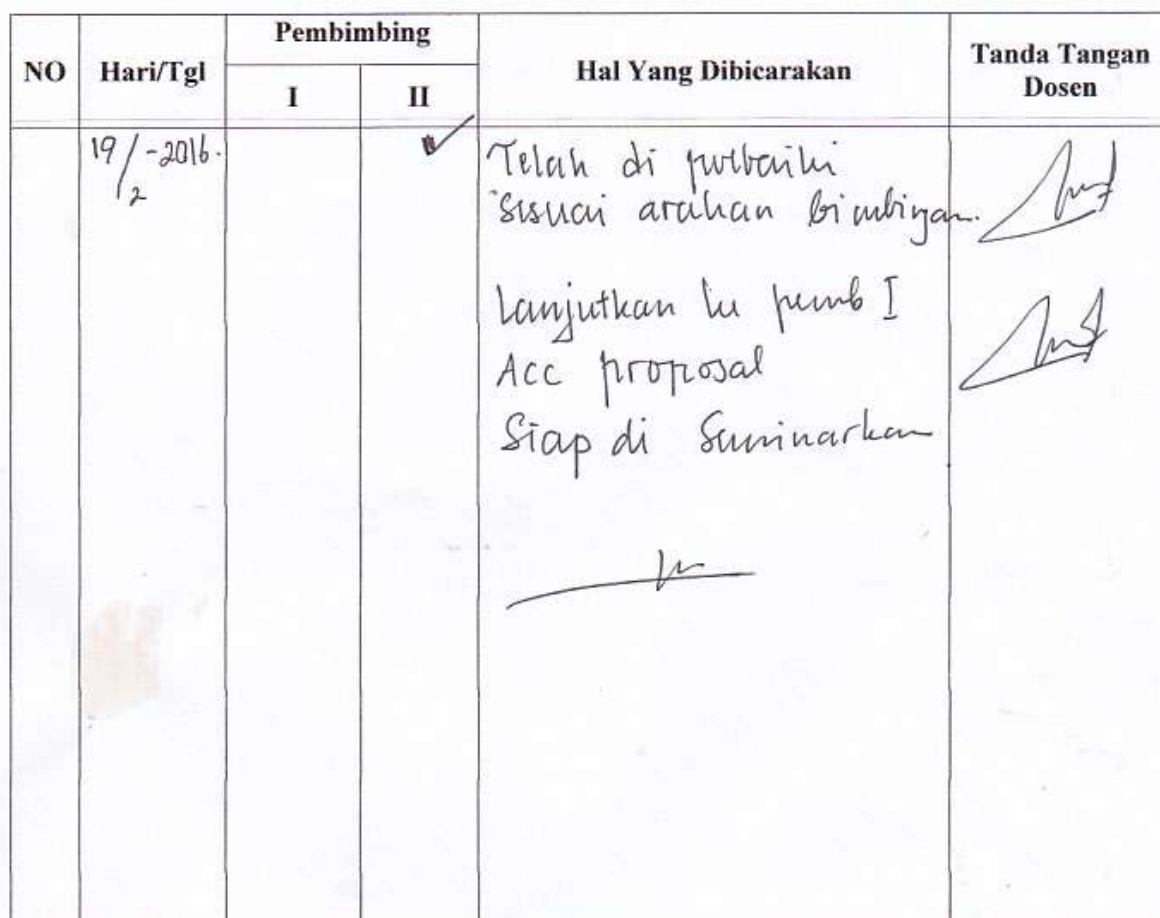 NO Hari/Tgl Pembimbing Hal Yang Dibicarakan Tanda Tangan
Dosen
I II
19/2-2016. ✓ Telah di perbaiki
sesuai arahan bimbingan.
Lanjutkan ke pemb I
Acc proposal
Siap di Seminarkan